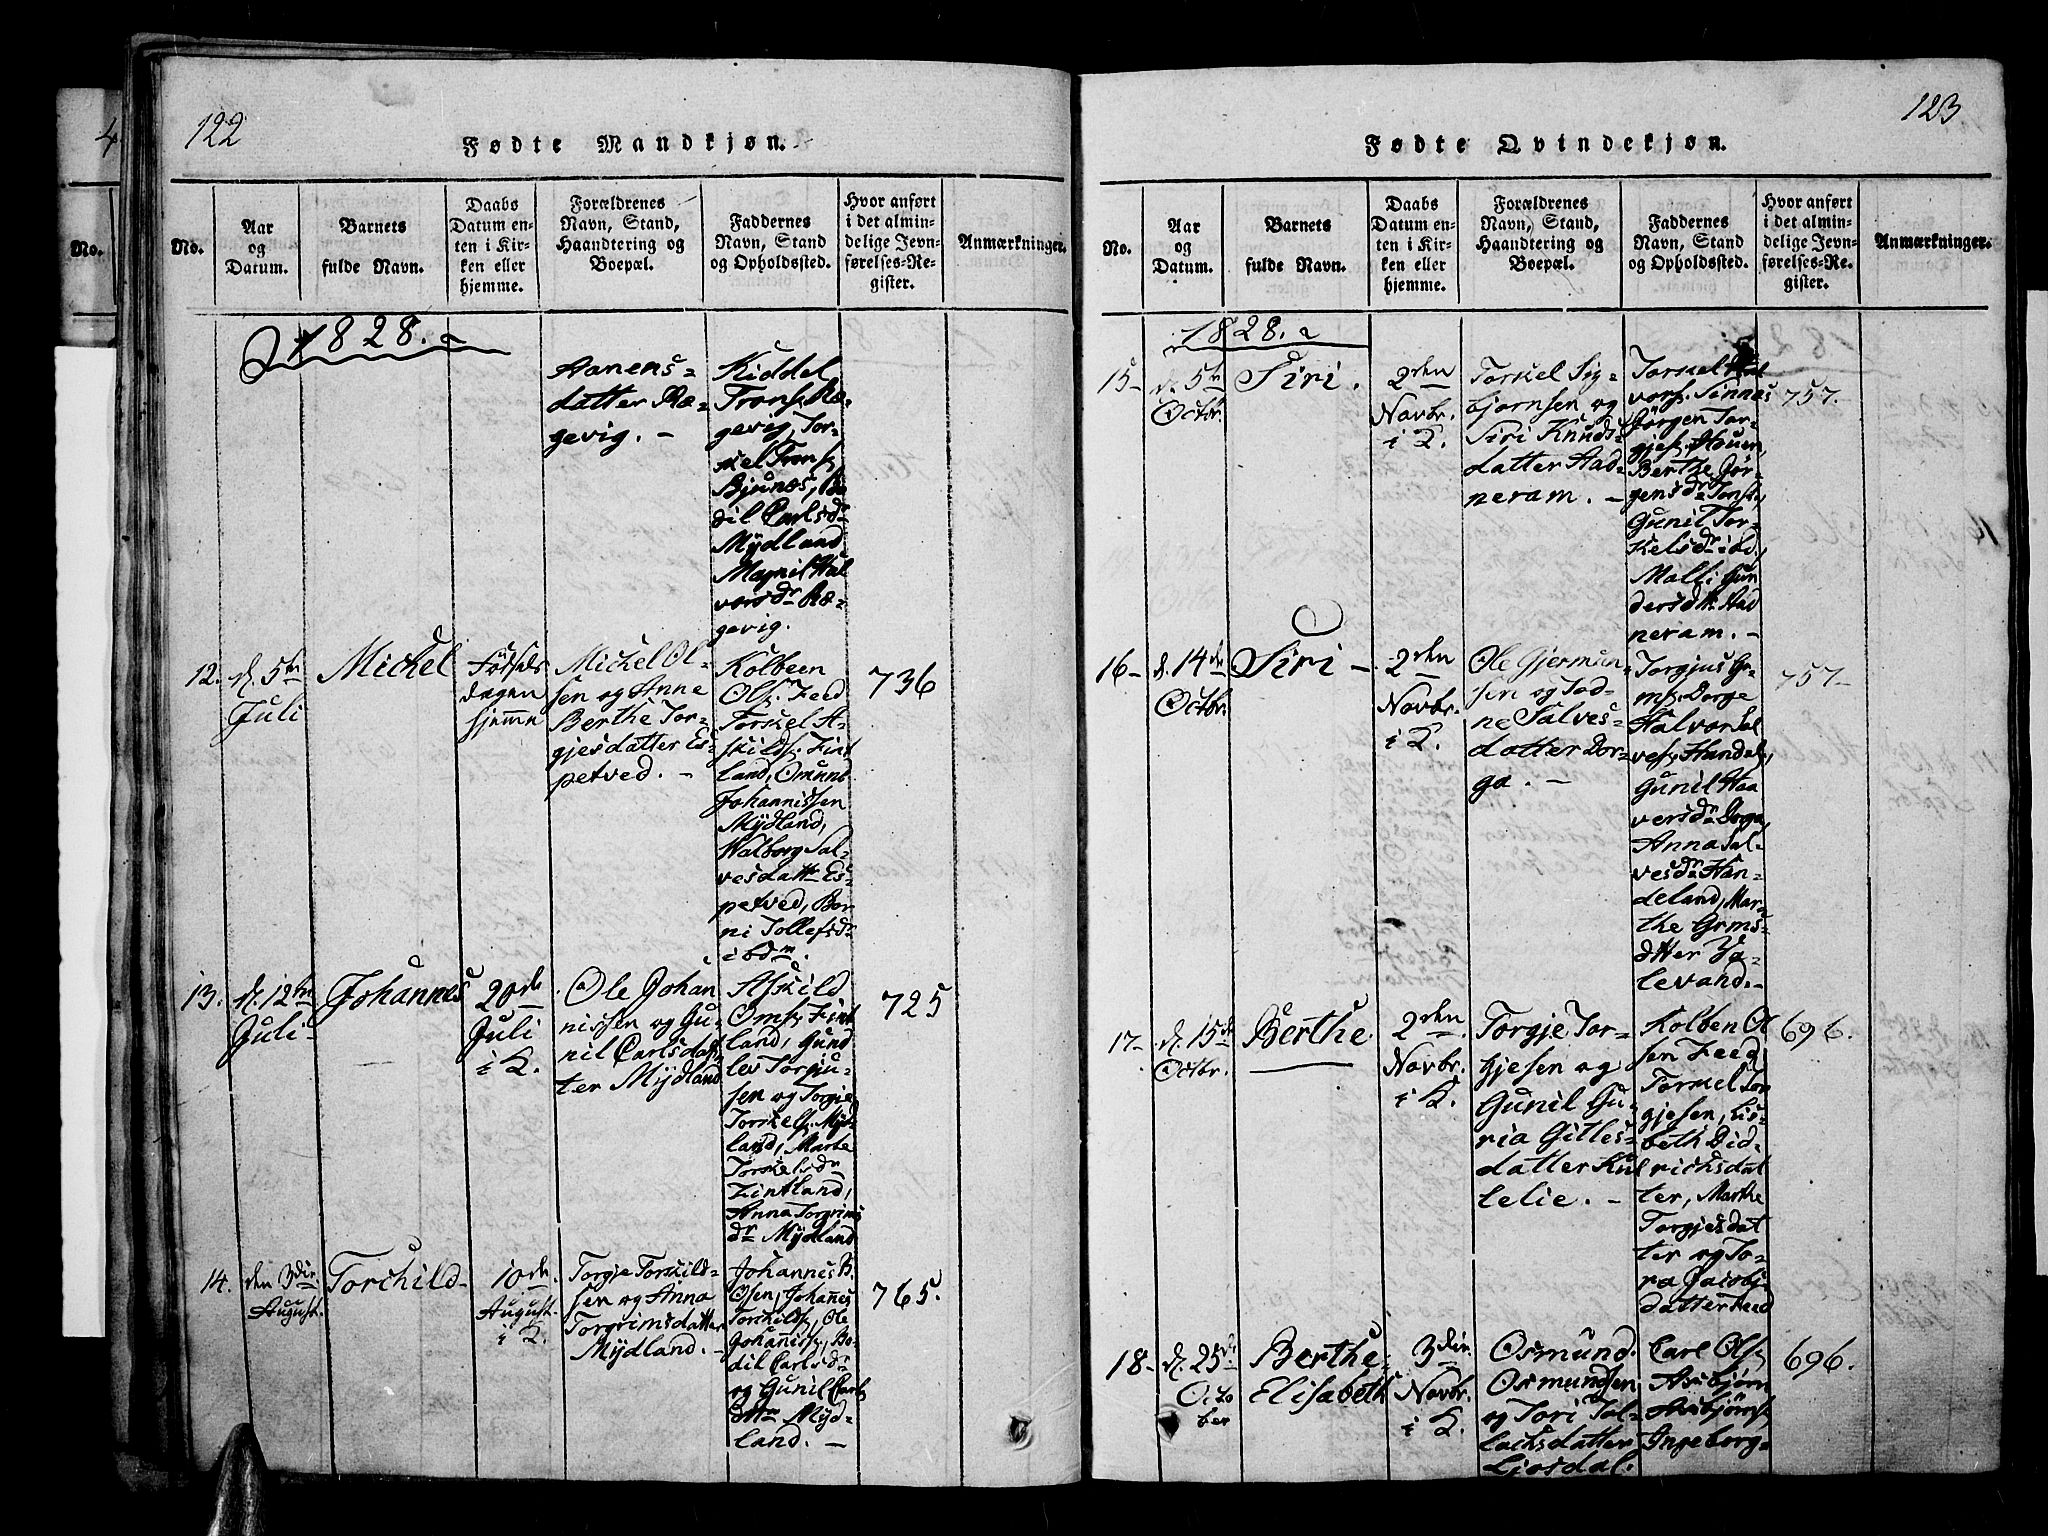 122
Fødte Mandkjøn.
No.
Aar
og
Datum.
Barnets
fulde Navn.
Daabs
Datum en-
ten i Kir-
ken eller
hjemme.
Forældrenes
Navn, Stand,
Haandtering og
Boepæl.
Faddernes
Navn, Stand
og Opholdssted.
Hvor anført
i det almin-
delige Jevn-
førelses-Re-
gister.
Anmærkninger.
1828.
Aanens-
datter Ræ-
gevig. -
Kiddel
Trons. Ræ-
gevig, Tor-
kel Trons.
Bjunæs,
dil Carlsdr
Mydland
Magnil Hal
vorsdr Ræ-
gevig.
12.
d. 5te
Juli
Michel
Fødsels
dagen
hjemme
Michel Ol-
sen og Anne
Berthe Tor-
gjesdatter Es-
petved. -
Kolbeen
Ols. Feed
Torkel A-
skilds. Fint
land, Omund
Johannissen
Mydland,
Walborg Sal-
vesdattr Es-
petved, Bor
ni Tollefsdr
ibdm.
736
13.
d. 12te
Juli-
Johannes
20de
Juli
i K.
Ole Johan
nissen og Gu-
nil Carlsdat-
ter Mydland
Askild
Oms. Fint
land, Gund
lev Torgju-
sen og Torgie
Torkels. Myd
land, Marte
Torkelsdr
Fintland,
Anna Torgrims
dr Mydland
725
14.
den 3die
August.
Torchild-
10de
August.
i K.
Torgje Torkild-
sen og Anna
Torgrimsdatter
Mydland. -
Johannes B.
Osen, Johañes
Torkilds, Ole
Johanis, Bo-
dil Carlsdr
og Gunil Carls
dttr Myd-
land. -
765.
123
Fødte Qvindekjøn.
No.
Aar
og
Datum.
Barnets
fulde Navn.
Daabs
Datum en-
ten i Kir-
ken eller
hjemme.
Forældrenes
Navn, Stand,
Haandtering og
Boepæl.
Faddernes
Navn, Stand
og Opholdssted.
Hvor anført
i det almin-
delige Jevn-
førelses-Re-
gister.
Anmærkninger.
1828.
15-
d. 5te
Octbr.
Siri.
2den
Novbr.
i K.
Torkel Sig-
bjørnsen og
Siri Knuds-
datter Aad-
neram. -
Torkel Hal
vors. Sinnes
Jörgen Tor-
gjes.
Berthe Jör-
gensdr
Gunil Tor-
kelsdr ibd.
Malli Gun
dersdtr. Aad
neram. -
757.
16-
d. 14de
Octbr.
Siri-
2den
Novbr.
i K.
Ole Gjermun-
sen og Tod-
ne Salves-
datter Dor-
ga. -
Torgjus
Dorge
Halvor Sal
ves.
Gunil Haa
versdr Dorga,
Anna Sal-
vesdr Han-
deland, Mar-
the Grms-
dtter
levand.-
757-
17-
d. 15de
Octbr.
Berthe
2den
Novbr.
i K.
Torgje Tor-
gjesen og
Gunil Gu-
ria Gitles-
datter Kul
lelie. -
Kolben Ol
sen Feed
Torkel Tor
gjesen, Lis-
beth Did-
richsdat
ter, Marthe
Torgjesdat
ter og To-
ra Jacobs-
datter Feed
696.
18-
d. 25de
Octo
ber
Berthe
Elisabeth
3die
Novbr.
i K.
Osmund
Osmundsen
og Tori Tol-
lachsdatter
Ljosdal.
Carl Ols,
Asbjørn
Asbjørns.
Ingeborg-
696.